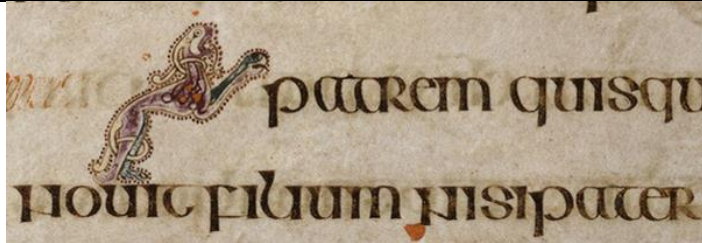 patrem quisqu
nouit filium nisi pater